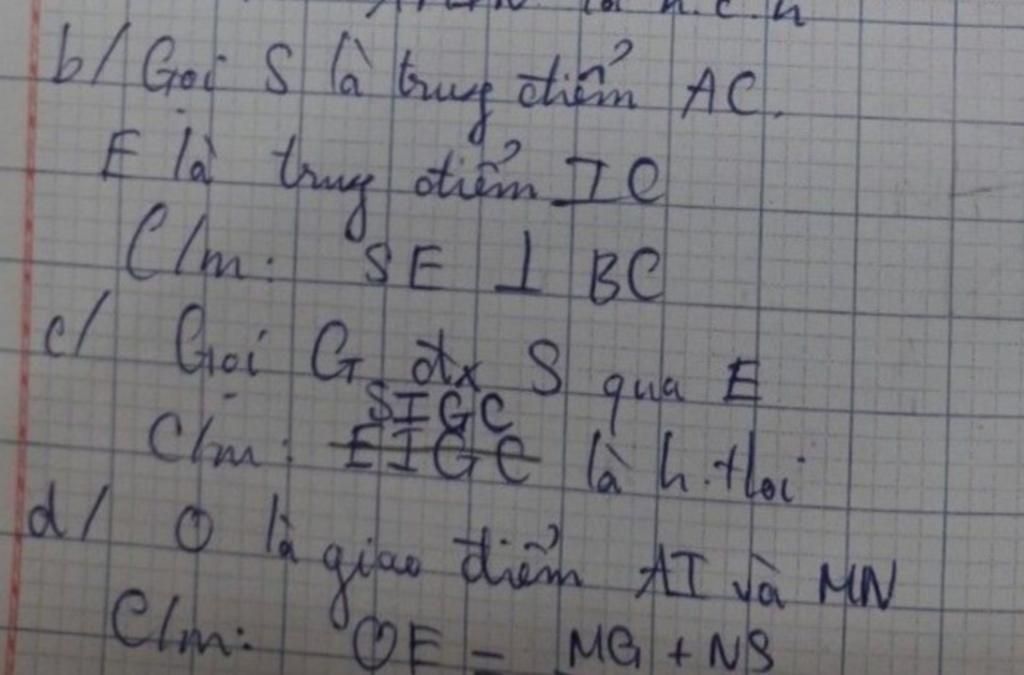 là h.c.n
b/ Gọi S là trung điểm AC.
E là trung điểm IC
C/m: SE ⊥ BC
c/ Gọi G đx S qua E
SIGC
C/m: EIGC là h.thoi
d/ O là giao điểm AI và MN
C/m: OE = MG + NS